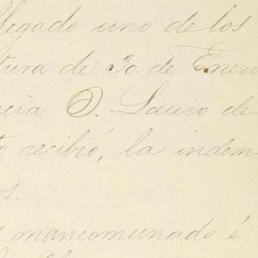 llegado uno de los
tura de 30 de Enero
cia D. Lauro de
to recibió, la indem
os.
s mancomunado é